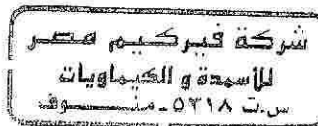 شركة فيركيم مصر
للأسمدة و الكيماويات
س.ت ٥٢١٨ - منــوف